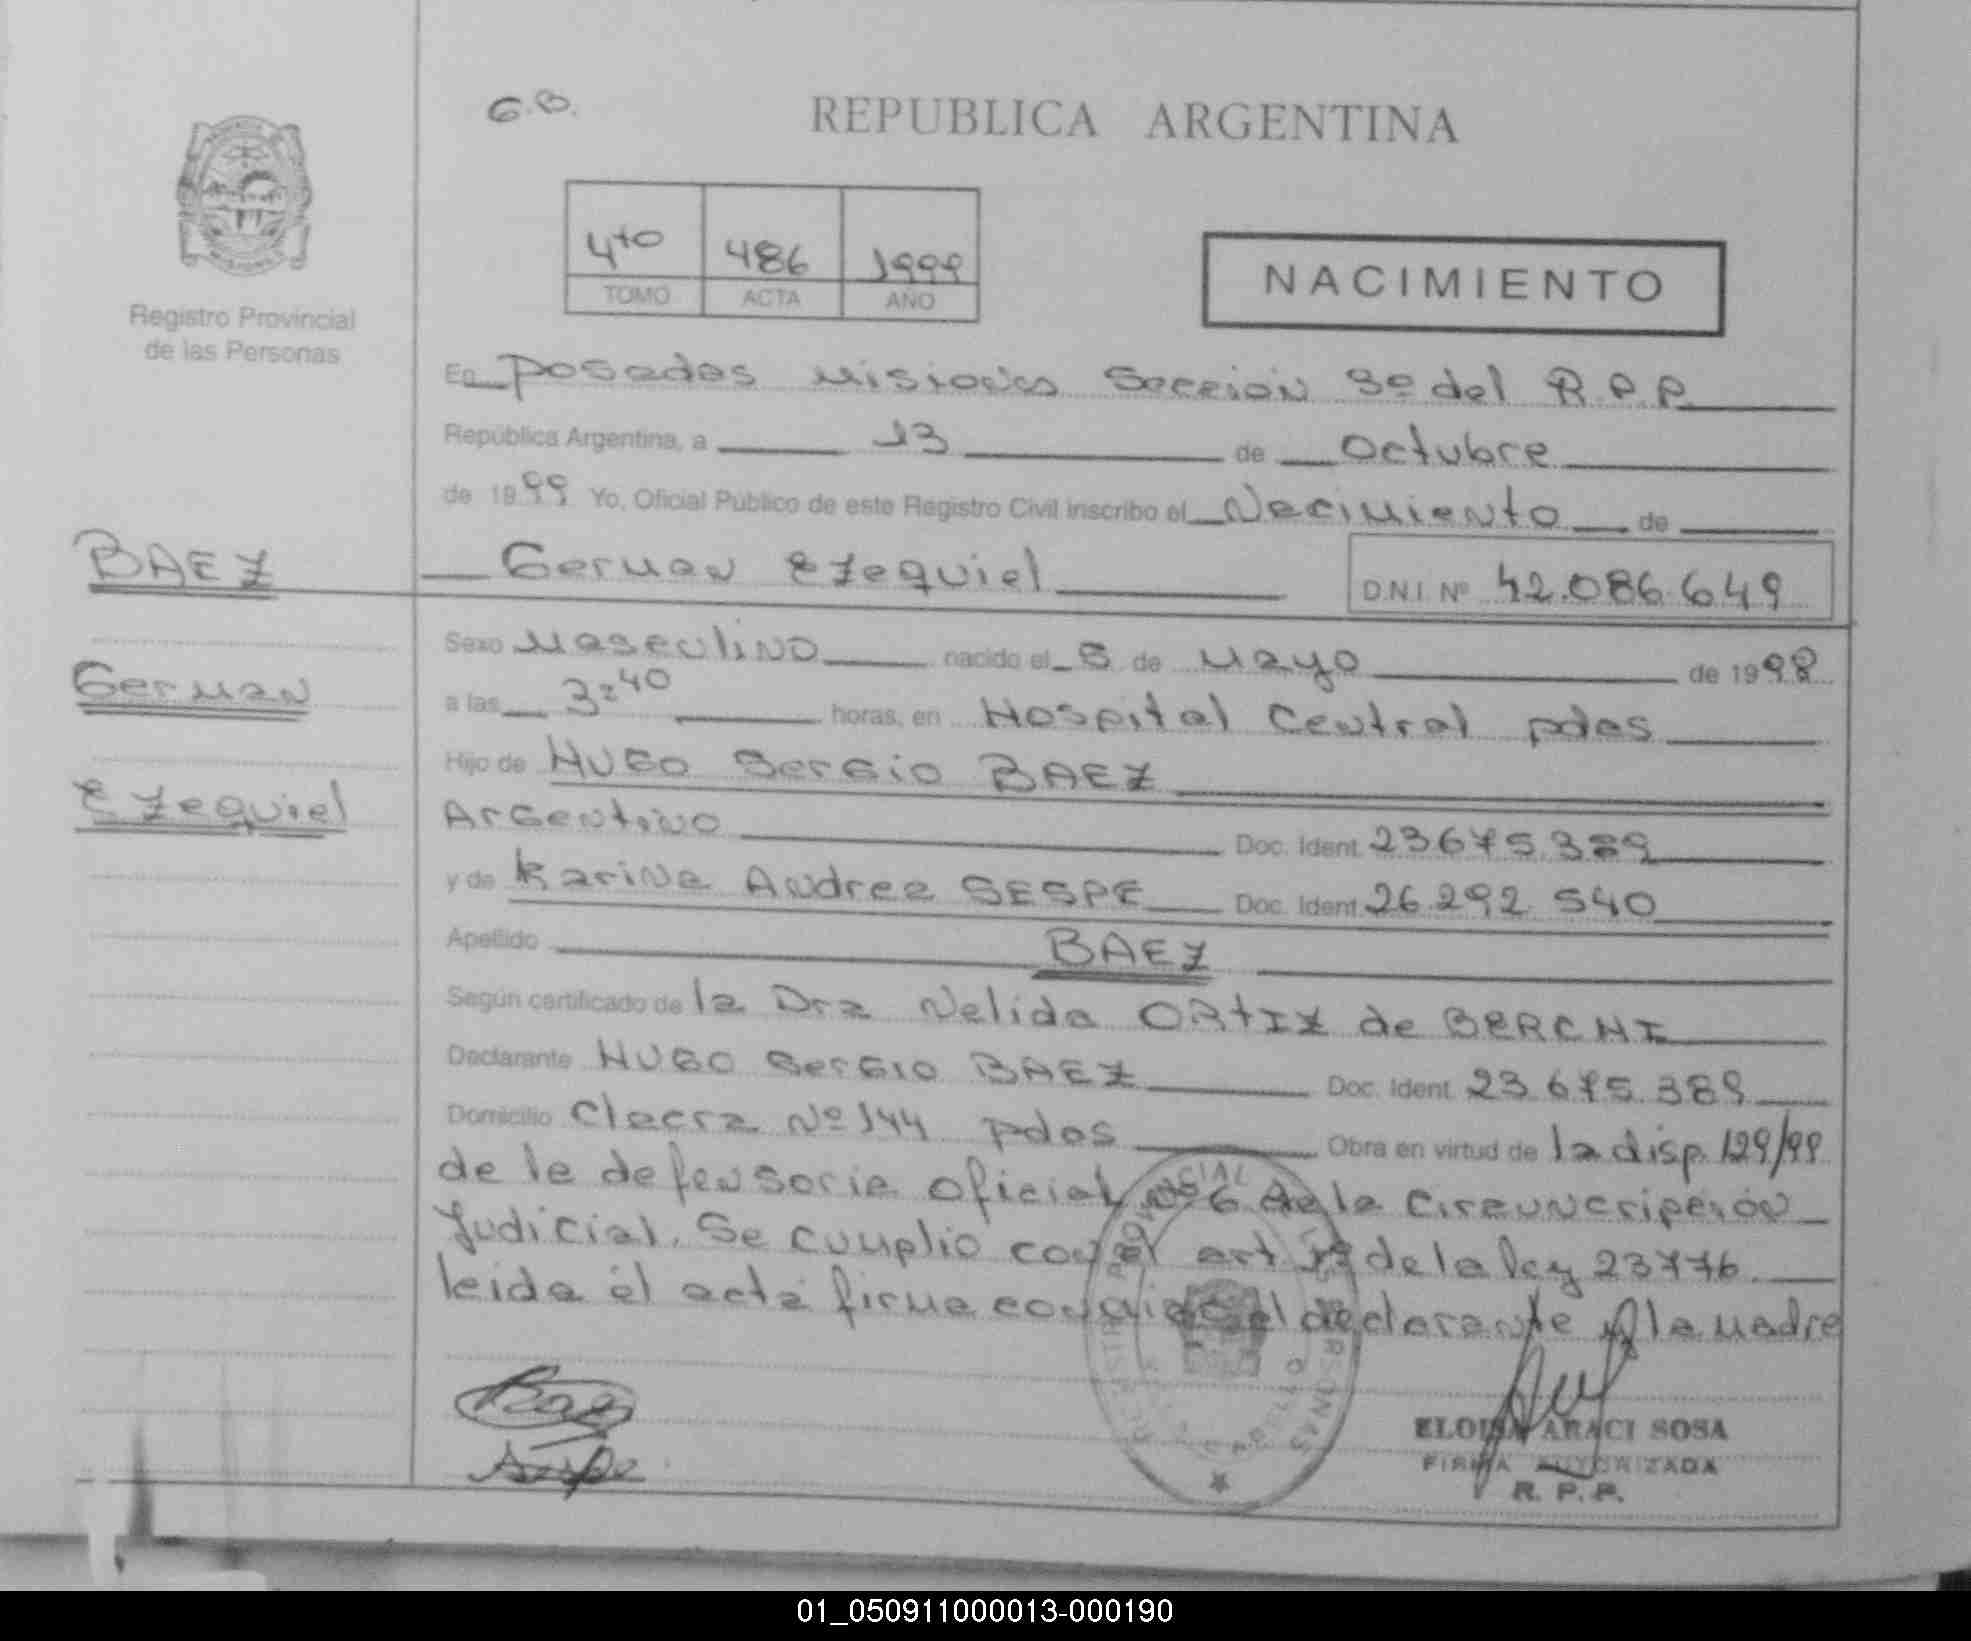 G.B.
REPUBLICA ARGENTINA
4to 486 1999
TOMO ACTA AÑO
NACIMIENTO
Registro Provincial
de las Personas
En Posadas Misiones Sección 3º del R.P.P.
República Argentina, a 13 de Octubre
de 1999 Yo, Oficial Público de este Registro Civil inscribo el Nacimiento de
German Ezequiel D.N.I. Nº 42.086.649
BAEZ
German
Ezequiel
Sexo Masculino nacido el 5 de Mayo de 1998
a las 3:40 horas, en Hospital Central pdas
Hijo de HUGO Sergio BAEZ
Argentino Doc. Ident. 23675.389
y de Karina Andrea SESPE Doc. Ident. 26.292.540
Apellido BAEZ
Según certificado de la Dra Nelida ORtIZ de BERCHI
Declarante HUGO Sergio BAEZ Doc. Ident. 23.675.389
Domicilio Chacra Nº 144 pdas Obra en virtud de la disp. 129/99
de la defensoria oficial nº 6 de la Circunscripción
Judicial. Se cumplio con el art de la ley 23776.
leida el acta firma conmigo el declarante y la madre
Baez
ELOISA ARACI SOSA
FIRMA AUTORIZADA
R. P. P.
01_050911000013-000190